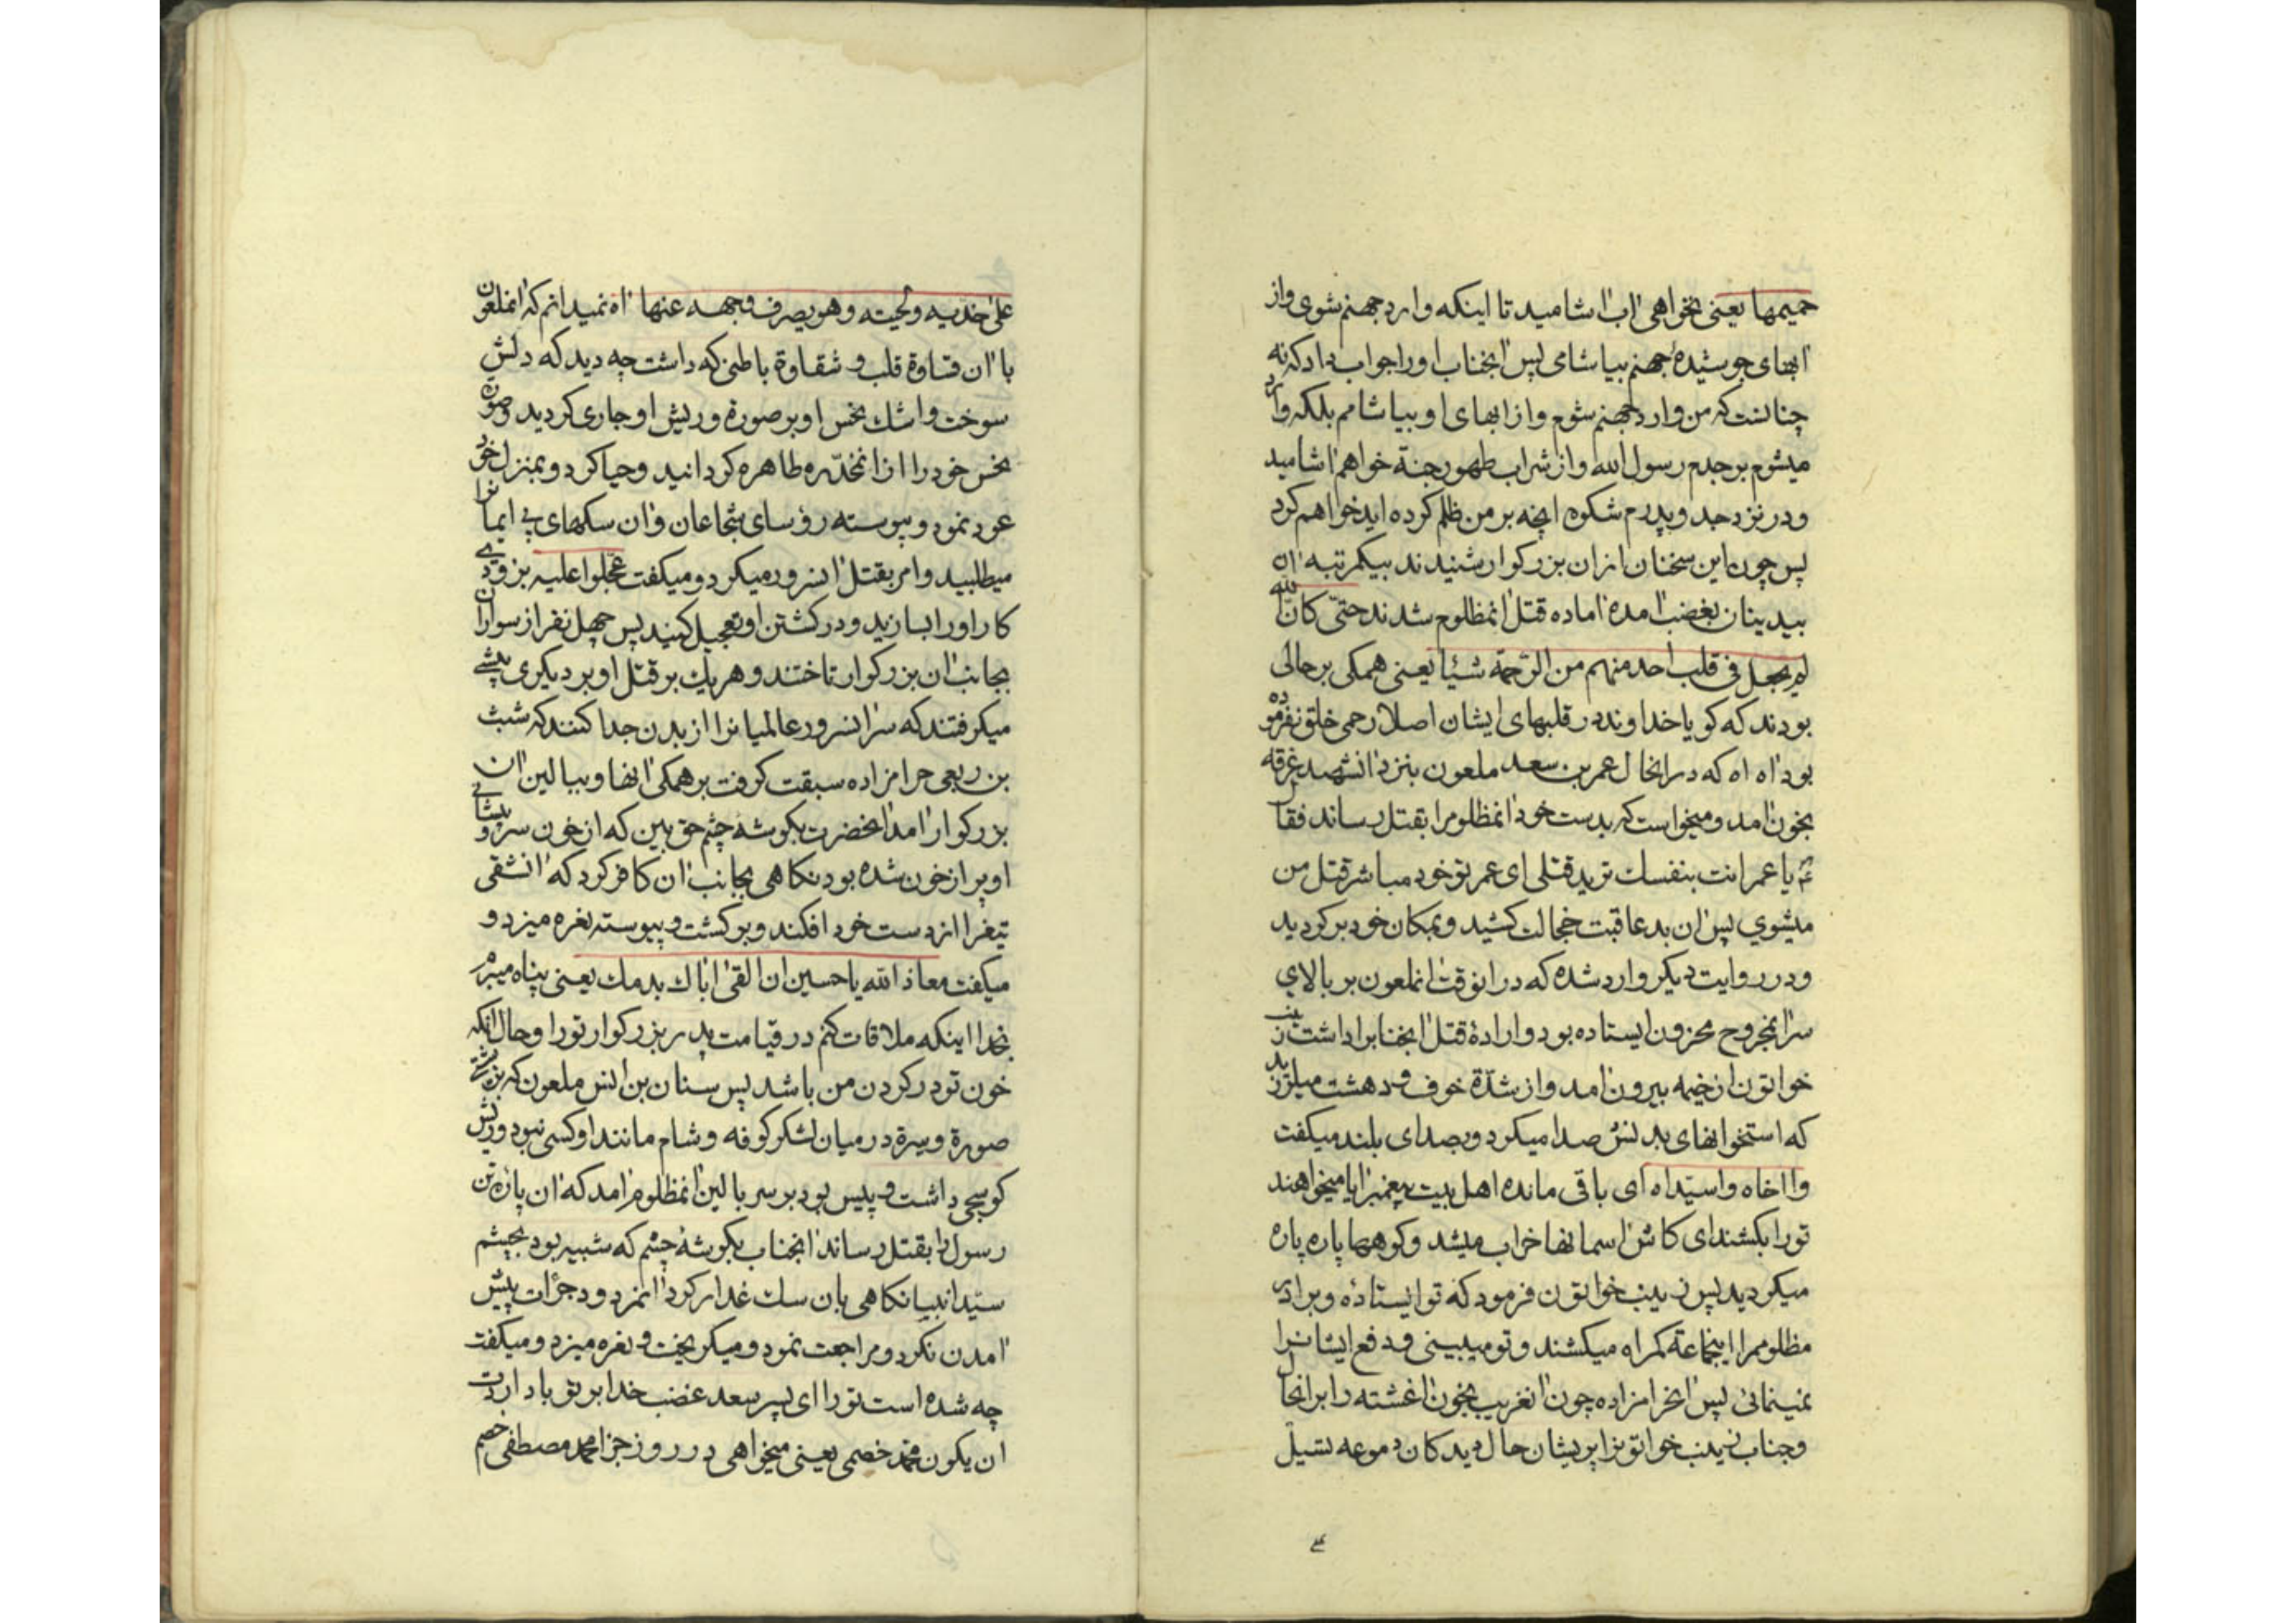 حمیمها یعنی نخواهی اب اشامید تا اینکه وارد جهنم شوی و از
ابهای جوشیده جهنم بیاشامی پس انجناب او را جواب داد که نه
چنانست که من وارد جهنم شوم و از ابهای او بیاشامم بلکه وارد
میشوم بر جدم رسول الله و از شراب طهور جنة خواهم اشامید
و در نزد جد و پدرم شکوه انچه بر من ظلم کرده اید خواهم کرد
پس چون این سخنان از ان بزرکوار شنیدند بیکمرتبه ان
بیدینان بغضب امده اماده قتل انمظلوم شدند حتی کان الله
لم یجعل فی قلب احد منهم من الرحمة شیئا یعنی همکی بر حالی
بودند که کویا خداوند در قلبهای ایشان اصلا رحمی خلق نفرموده
بود اه اه که در انحال عمر بن سعد ملعون بنزد انشهید غرقه
بخون امد و میخواست که بدست خود انمظلومرا بقتل رساند فقال
یا عمر انت بنفسك ترید قتلی ای عمر تو خود مباشر قتل من
میشوي پس ان بد عاقبت خجالت کشید و بمکان خود بر کردید
و در روایت دیکر وارد شده که در انوقت انملعون بر بالاي
سر انمجروح محزون ایستاده بود و ارادۀ قتل انجنابرا داشت زینب
خواتون از خیمه بیرون امد و از شدّة خوف و دهشت میلرزید
که استخوانهای بدنش صدا میکرد و بصدای بلند میکفت
وا اخاه وا سیّداه ای باقی مانده اهل بیت پیغمبر ایا میخواهند
تو را بکشند ای کاش اسمانها خراب میشد و کوهها پاره پاره
میکردید پس زینب خواتون فرمود که تو ایستادۀ و برادر
مظلوممرا اینجماعة کمراه میکشند و تو میبینی و دفع ایشانرا
نمینمائی پس انحرامزاده چون انغریب بخون اغشته را بر انحال
و جناب زینب خواتونرا پریشان حال دید کان دموعه تسیل
علی خدّیه و لحیته و هو یصرف وجهه عنها اه نمیدانم که انملعون
با ان قساوة قلب و شقاوة باطنی که داشت چه دید که دلش
سوخت و اشك نحس او بر صورة و ریش او جاری کردید و صورة
نحس خود را از انمخدّره طاهره کردانید و حیا کرد و بمنزل خود
عود نمود و پیوسته رؤسای شجاعان و ان سکهای بی ایمانرا
میطلبید و امر بقتل انسرور میکرد و میکفت عجّلوا علیه بزودی
کار او را بسازید و در کشتن او تعجیل کنید پس چهل نفر از سواران
بجانب ان بزرکوار تاختند و هریك بر قتل او بر دیکری پیشی
میکرفتند که سر انسرور عالمیانرا از بدن جدا کنند که شبث
بن ربعی حرامزاده سبقت کرفت بر همکی انها و ببالین ان
بزرکوار امد انحضرت بکوشه چشم حق بین که از خون سر و پیشانی
او پر از خون شده بود نکاهی بجانب ان کافر کرد که انشقی
تیغرا از دست خود افکند و بر کشت و پیوسته نعره میزد و
میکفت معاذ الله یا حسین ان القی اباك بدمك یعنی پناه میبرم
بخدا اینکه ملاقات کنم در قیامت پدر بزرکوار تو را و حال انکه
خون تو در کردن من باشد پس سنان بن انس ملعون که بزشتی
صورة و سیرة در میان لشکر کوفه و شام مانند او کسی نبود و ریش
کوسجی داشت و پیس بود بر سر بالین انمظلوم امد که ان پاره تن
رسول را بقتل رساند انجناب بکوشۀ چشم که شبیه بود بچشم
سیّد انبیا نکاهی بان سك غدار کرد انمردود جرأت پیش
امدن نکرد و مراجعت نمود و میکریخت و نعره میزد و میکفت
چه شده است تو را ای پسر سعد غضب خدا بر تو باد اردت
ان یکون محمد خصمی یعنی میخواهی در روز جزا محمد مصطفی خصم